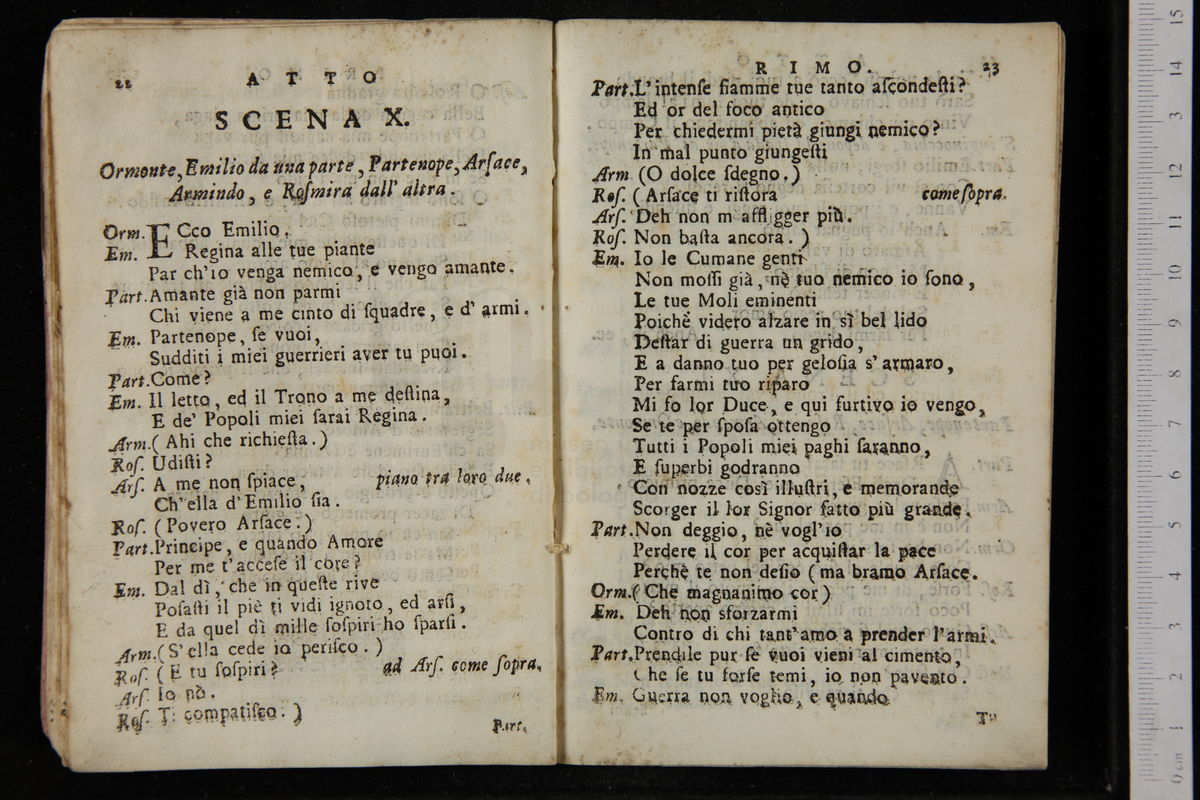 22 ATTO
SCENA X.
Ormonte, Emilio da una parte, Partenope, Arſace,
Armindo, e Roſmira dall' altra.
Orm. ECco Emilio.
Em. Regina alle tue piante
Par ch'io venga nemico, e vengo amante.
Part. Amante già non parmi
Chi viene a me cinto di ſquadre, e d' armi.
Em. Partenope, ſe vuoi,
Sudditi i miei guerrieri aver tu puoi.
Part. Come?
Em. Il letto, ed il Trono a me deſtina,
E de' Popoli miei ſarai Regina.
Arm. (Ahi che richieſta.)
Roſ. Udiſti?
Arſ. A me non ſpiace, piano tra loro due.
Ch'ella d'Emilio ſia.
Roſ. (Povero Arſace.)
Part. Principe, e quando Amore
Per me t'acceſe il core?
Em. Dal dì, che in queſte rive
Poſaſti il piè ti vidi ignoto, ed arſi,
E da quel dì mille ſoſpiri ho ſparſi.
Arm. (S'ella cede io periſco.)
Roſ. (E tu ſoſpiri? ad Arſ. come ſopra.
Arſ. Io nò.
Roſ. Ti compatiſco.)
Part.
RIMO. 23
Part. L' intenſe fiamme tue tanto aſcondeſti?
Ed or del foco antico
Per chiedermi pietà giungi nemico?
In mal punto giungeſti
Arm (O dolce ſdegno,)
Roſ. (Arſace ti riſtora come ſopra.
Arſ. Deh non m affligger più.
Roſ. Non baſta ancora.)
Em. Io le Cumane genti
Non moſſi già, nè tuo nemico io ſono,
Le tue Moli eminenti
Poichè videro alzare in sì bel lido
Deſtar di guerra un grido,
E a danno tuo per geloſia s' armaro,
Per farmi tuo riparo
Mi fo lor Duce, e qui furtivo io vengo,
Se te per ſpoſa ottengo
Tutti i Popoli miei paghi ſaranno,
E ſuperbi godranno
Con nozze così illuſtri, e memorande
Scorger il lor Signor fatto più grande.
Part. Non deggio, nè vogl'io
Perdere il cor per acquiſtar la pace
Perchè te non deſio (ma bramo Arſace.
Orm. (Che magnanimo cor)
Em. Deh non sforzarmi
Contro di chi tant'amo a prender l'armi.
Part. Prendile pur ſe vuoi vieni al cimento,
Che ſe tu forſe temi, io non pavento.
Em. Guerra non voglio, e quando
Tu